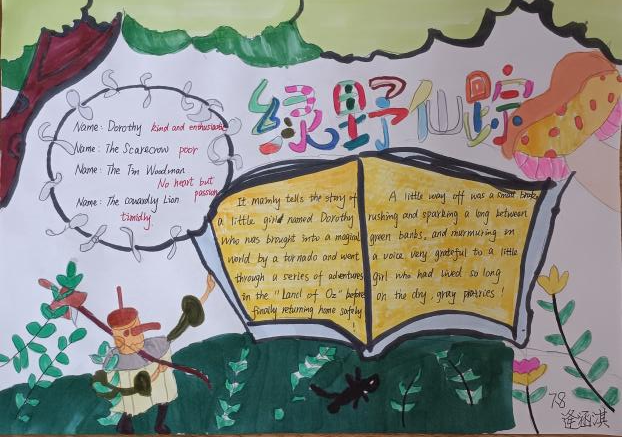 绿野仙踪
Name: Dorothy kind and enthusiastic
Name: The Scarecrow poor
Name: The Tin Woodman
No heart but
passion
Name: The cowardly Lion
timidly
It mainly tells the story of
a little girl named Dorothy
who was brought into a magical
world by a turnado and went
through a series of adventures
in the "Land of Oz" before
finally returning home safely
!
A little way off was a small brook
rushing and sparking a long between
green banks, and murmuring in
a voice very grateful to a little
girl who had lived so long
on the dry, gray prairies!
78
逄涵淇